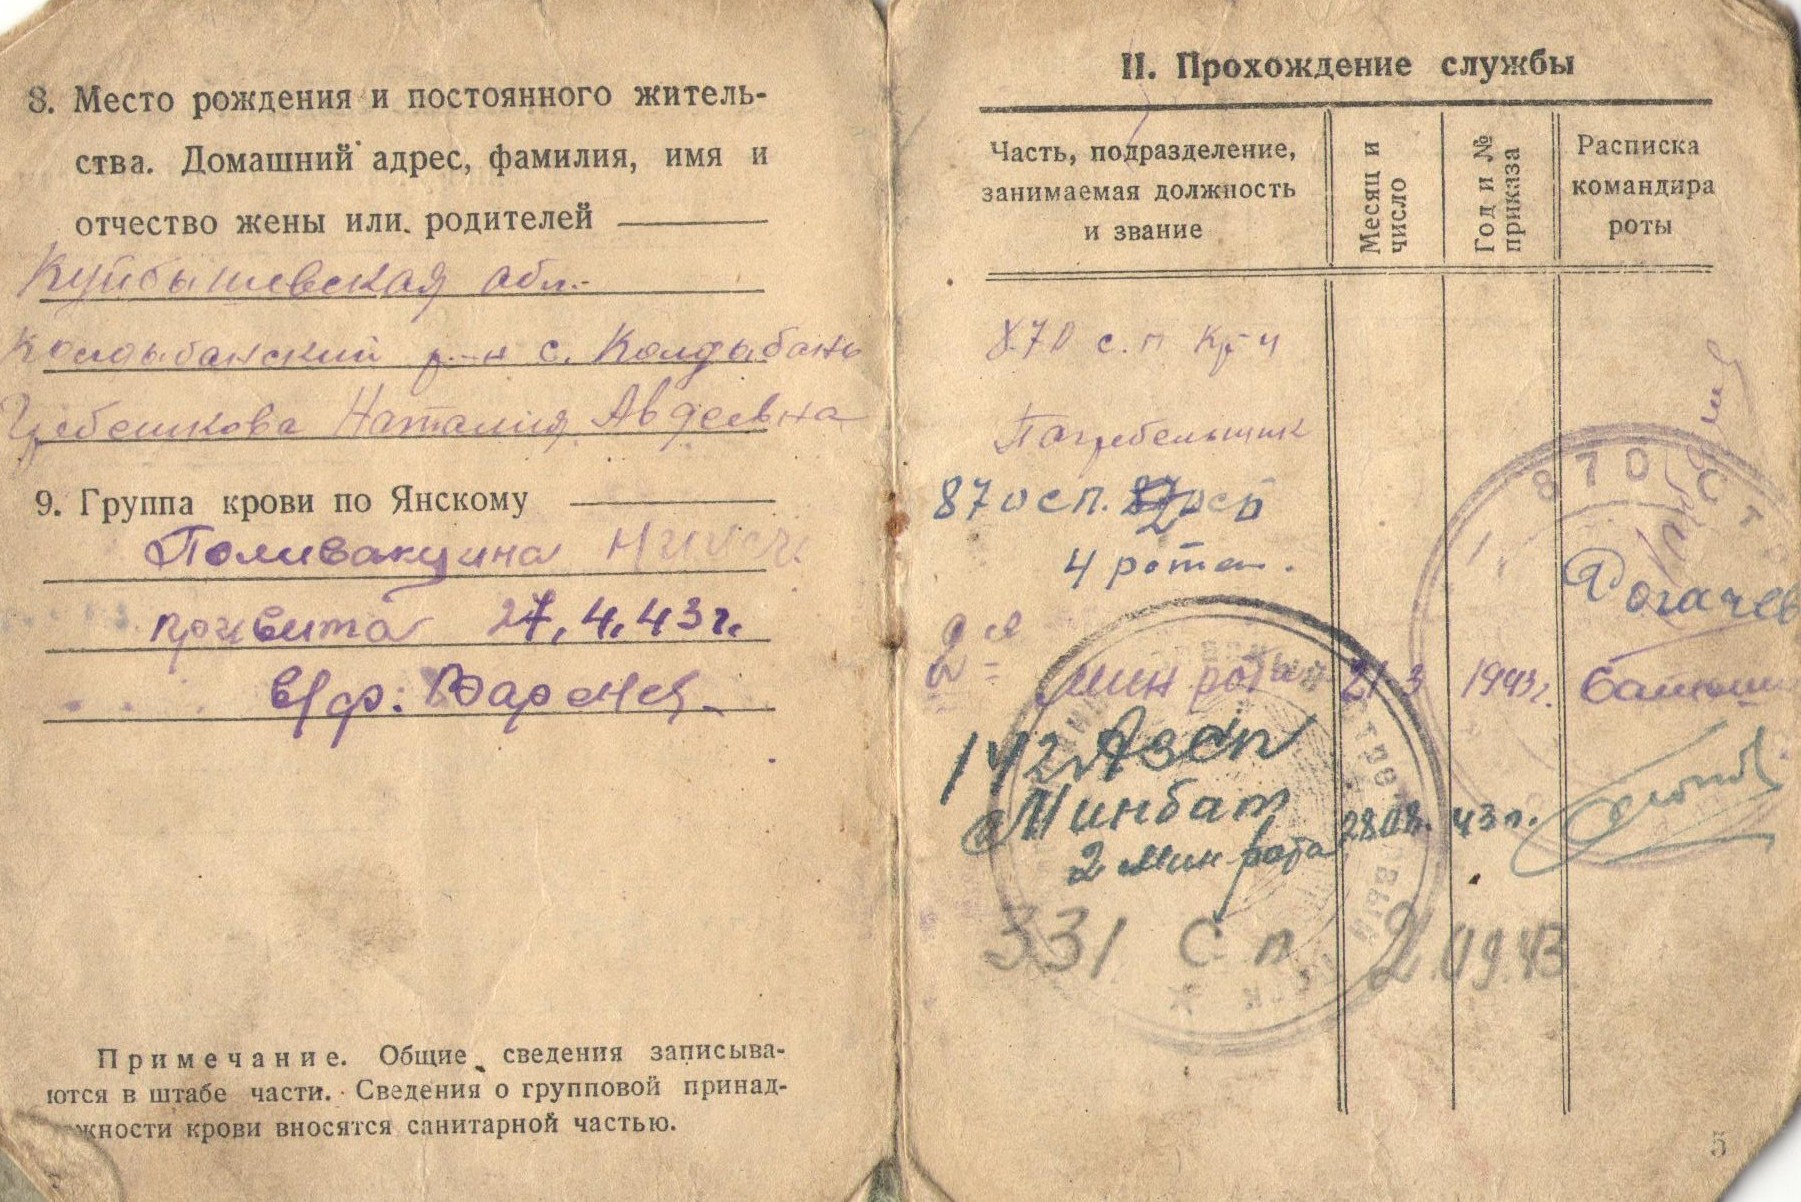 8. Место рождения и постоянного житель-
ства. Домашний адрес, фамилия, имя и
отчество жены или родителей
Куйбышевская обл.
Колдыбанский р-н с. Колдыбань
Гребешкова Наталия Авдеевна
9. Группа крови по Янскому
Поливакцина НИИСИ
привита 27.4.43г.
в/ф:
Примечание. Общие сведения записыва-
ются в штабе части. Сведения о групповой принад-
жности крови вносятся санитарной частью.
II. Прохождение службы
Часть, подразделение,
занимаемая должность
и звание
Месяц и
число
Год и №
приказа
Расписка
командира
роты
870 с.п кр-ц
Погребельщик
870 сп. 2 сб
4 рота.
Рогачев
2я мин рота 21 3 1943г.
142 Азсп
Минбат
2 мин рота 28.08. 43г.
331 С п. 2.09.43
870 Ст
5